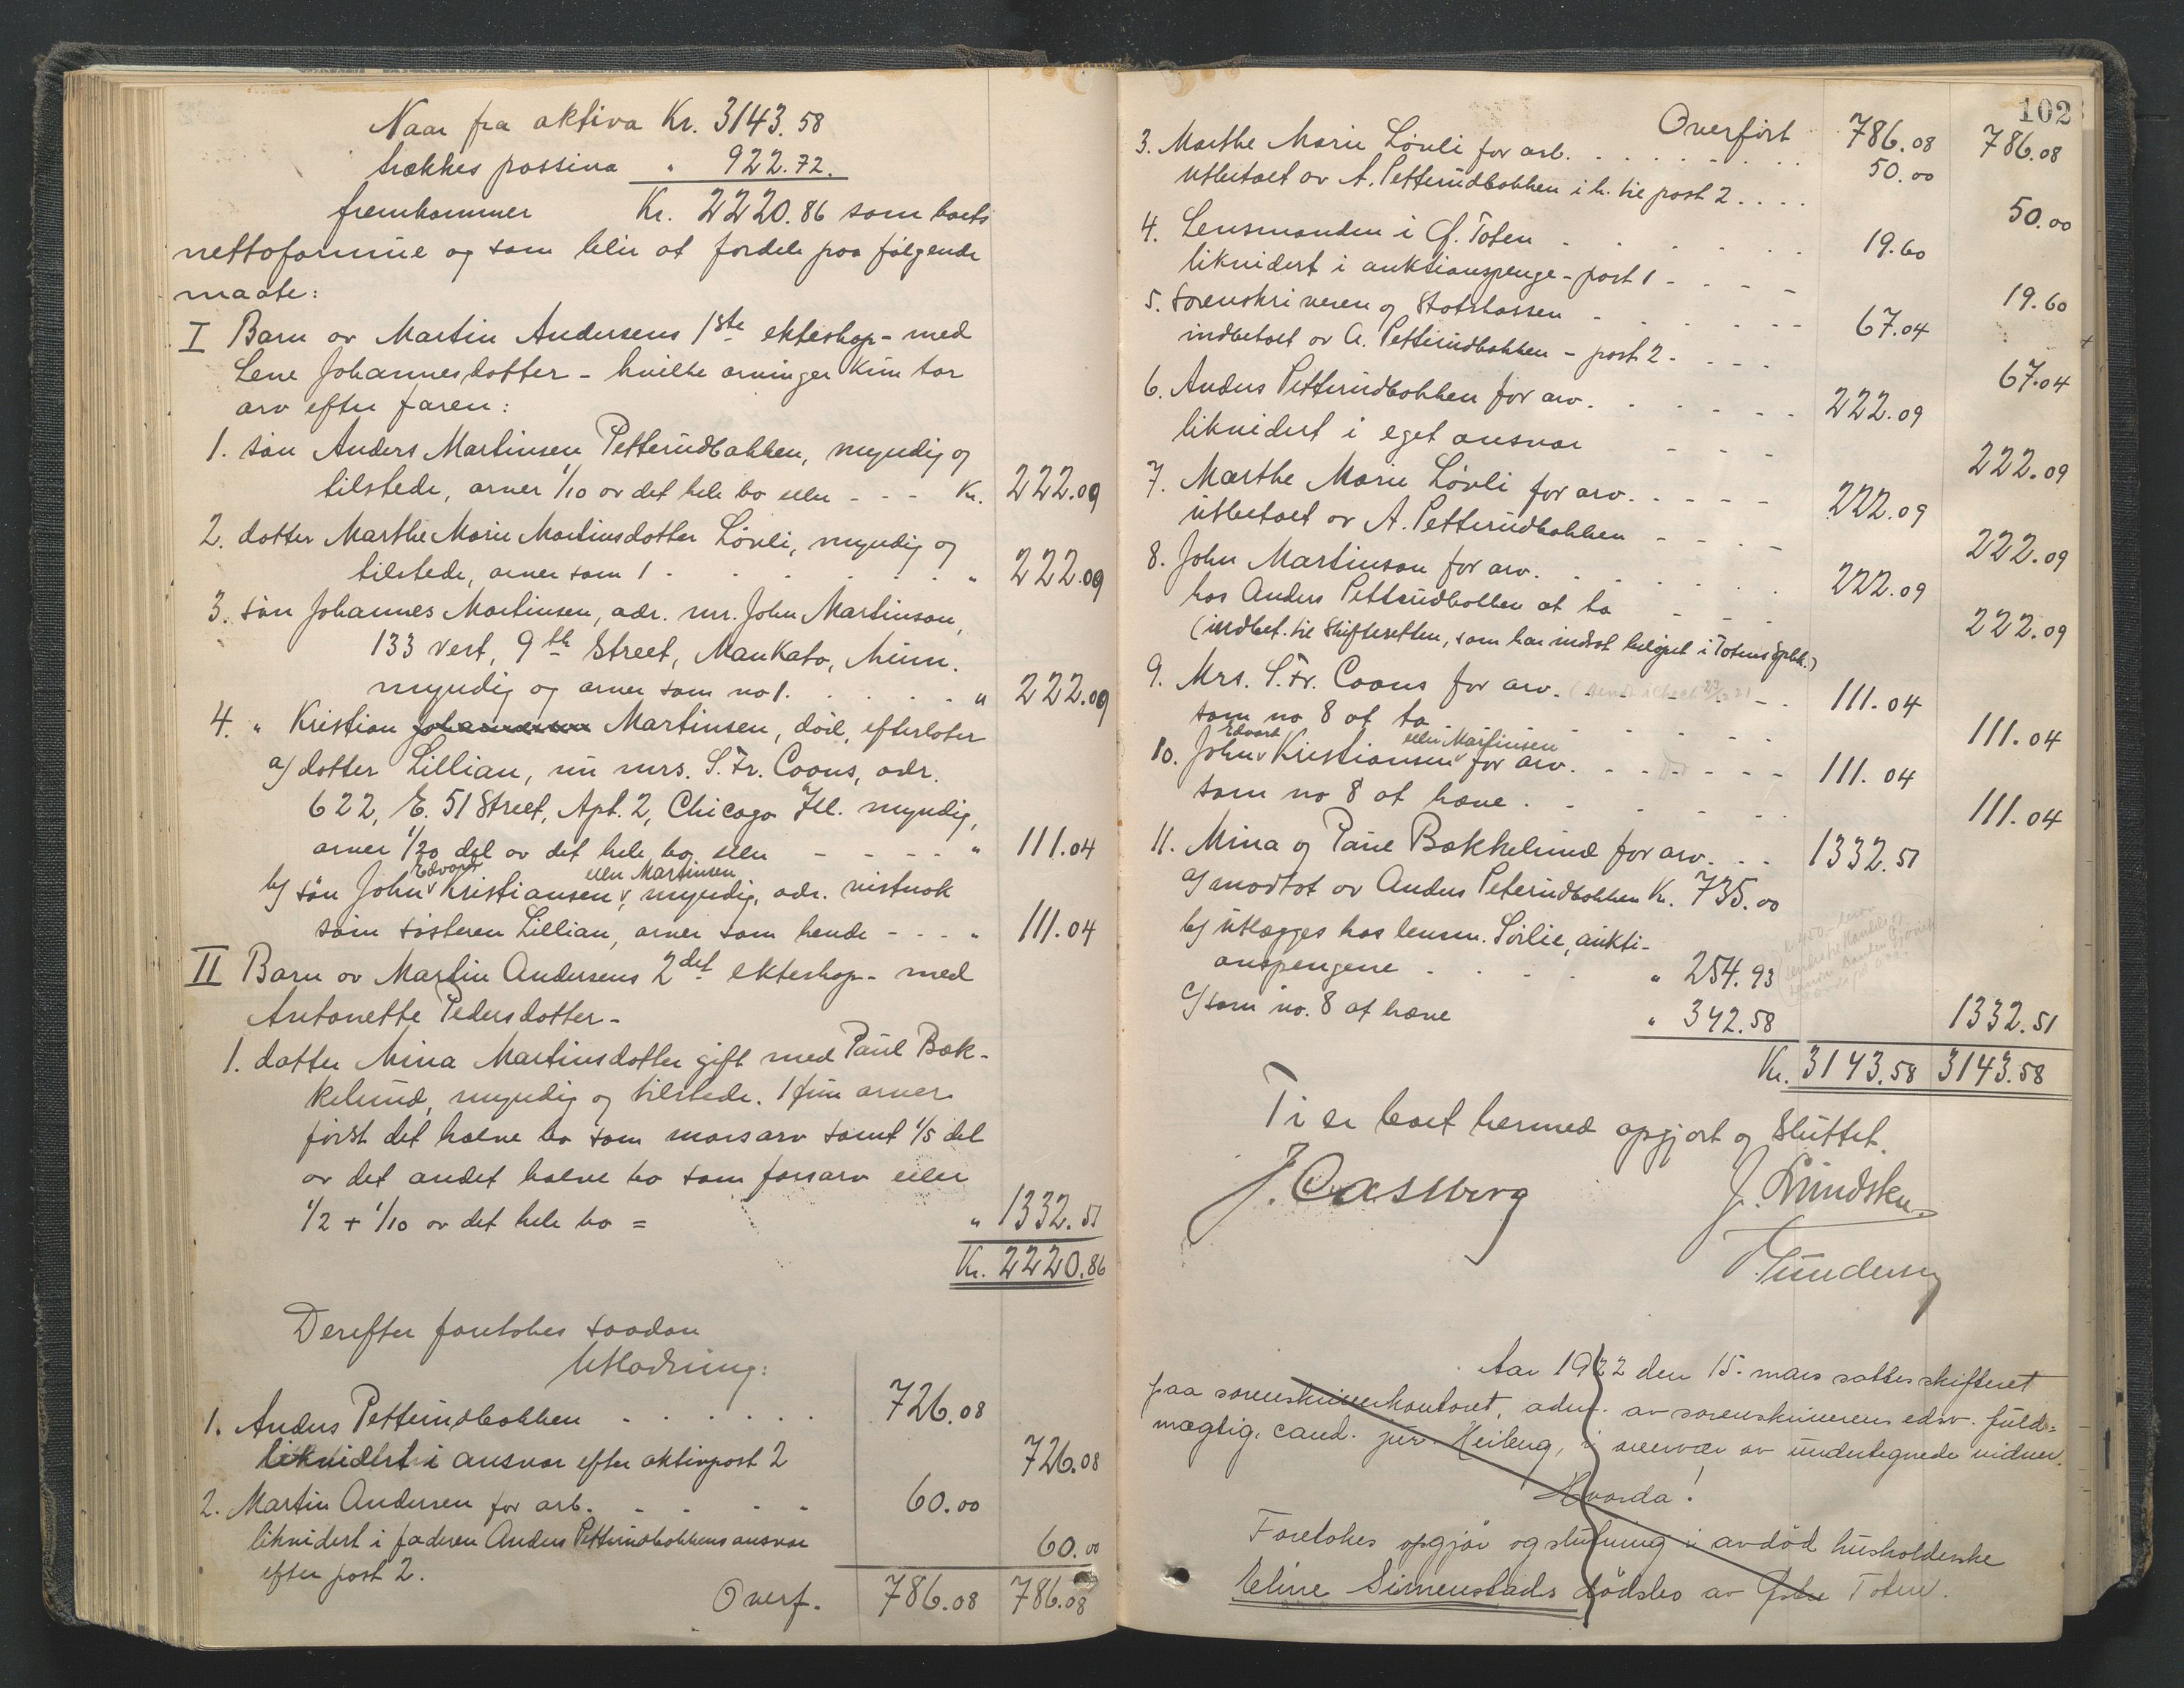 Naar fra aktiva Kr. 3143.58
trækkes passiva " 922.72.
fremkommer Kr. 2220.86 som boets
nettoformue og som blir at fordele paa følgende
maate:
I Barn av Martin Andersens 1ste ekteskap - med
Lene Johannesdatter - hvilke arvinger kun tar
arv efter faren:
1. søn Anders Martinsen Petterudbakken, myndig og
tilstede, arver 1/10 av det hele bo eller - - - Kr. 222.09
2. datter Marthe Marie Martinsdatter Løvli, myndig og
tilstede, arver som 1 . . . . . . " 222.09
3. søn Johannes Martinsen, adr. mr. John Martinson,
133 vest, 9th Street, Mankato, Minn.
myndig og arver som no 1. . . . . . " 222.09
4. " Kristian Johannesen Martinsen, død, efterlater
a/ datter Lillian, nu mrs. S. Fr. Coons, adr.
622, E. 51 Street, Apt. 2, Chicago Ill. myndig,
arver 1/20 del av det hele bo eller - - - - " 111.04
Edvart eller Martinsen
b/ søn John Kristiansen, myndig, adr. vistnok
som søsteren Lillian, arver som hende - - - " 111.04
II Barn av Martin Andersens 2det ekteskap - med
Antonette Pedersdatter -
1. datter Mina Martinsdatter gift med Paul Bak-
kelund, myndig og tilstede. Hun arver
først det halve bo som morsarv samt 1/5 del
av det andet halve bo som farsarv eller
1/2 + 1/10 av det hele bo = " 1332.51
Kr. 2220.86
Derefter foretokes saadan
Utlodning:
1. Anders Petterudbakken . . . . . . 726.08
likvidert i ansvar efter aktivpost 2 726.08
2. Martin Andersen for arb. - - - - 60.00
likvidert i faderen Anders Petterudbakkens ansvar
efter post 2. 60.00
Overf. 786.08 786.08
102
Overført 786.08 786.08
3. Marthe Marie Løvli for arb. . . . . . . . . 50.00
utbetalt av A. Petterudbakken i h. til post 2 . . . . 50.00
4. Lensmanden i Ø. Toten - . . . . . 19.60
likvidert i auktionspenge - post 1 - - - - 19.60
5. Sorenskriveren og Statskassen - - - - - - 67.04
indbetalt av A. Petterudbakken - post 2 - - - - 67.04
6. Anders Petterudbakken for arv. . . . - - - 222.09
likvidert i eget ansvar - - - 222.09
7. Marthe Marie Løvli for arv. . . . - - 222.09
utbetalt av A. Petterudbakken - - - - 222.09
8. John Martinson for arv. . . . . . . 222.09
hos Anders Petterudbakken at ta - - - 222.09
(indbet. til skifteretten, som har indsat beløpet i Totens Spbk.)
9. Mrs. S. Fr. Coons for arv. - - - - 111.04
som no 8 at ta - - - - - - 111.04
Edvart eller Martinsen
10. John Kristiansen for arv. - - - - - - 111.04
som no 8 at hæve . - - - - - 111.04
11. Mina og Paul Bakkelund for arv. . . 1332.51
a/ modtat av Anders Peterudbakken Kr. 735.00
b/ utlægges hos lensm. Sörlie, aukti-
onspengene - . . . . " 254.93
c/ som no. 8 at hæve " 342.58 1332.51
Kr. 3143.58 3143.58
Ti er boet hermed opgjort og sluttet.
Aar 1922 den 15. mars sattes skifteret
paa sorenskriverkontoret, adm. av sorenskriverens edsv. fuld=
mægtig, cand. jur. Heiberg, i overvær av undertegnede vidner.
Hvorda!
Foretokes opgjør og slutning i avdød husholderske
Eline Simenstads dødsbo av Østre Toten.